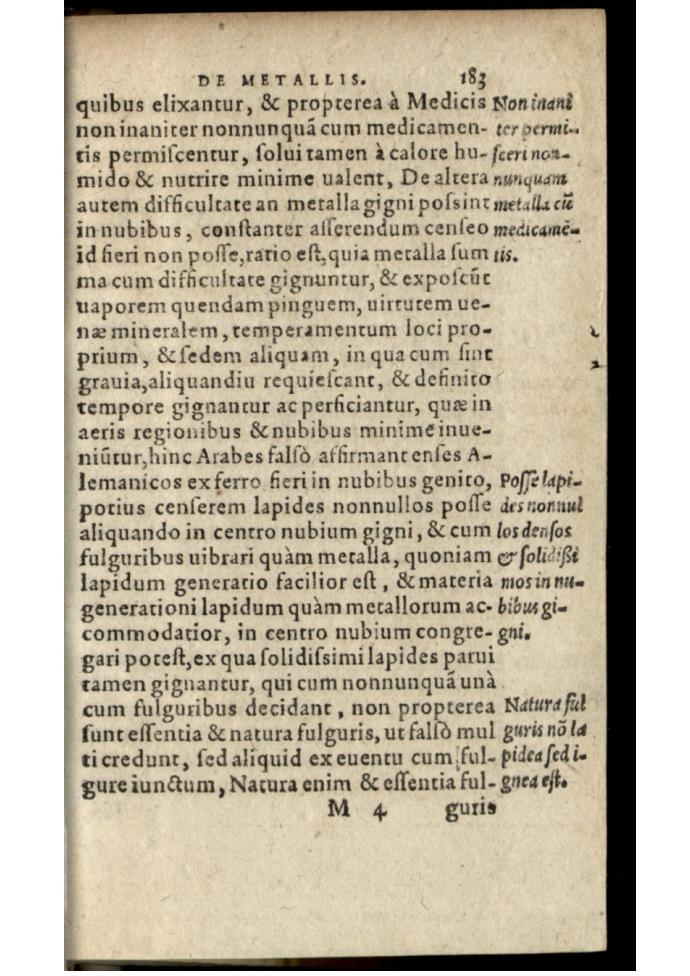 DE METALLIS. 183
quibus elixantur, & propterea à Medicis
non inaniter nonnunquã cum medicamen-
tis permiſcentur, ſolui tamen à calore hu-
mido & nutrire minime ualent, De altera
autem difficultate an metalla gigni poſsint
in nubibus, conſtanter aſſerendum cenſeo
id fieri non poſſe, ratio eſt, quia metalla ſum
ma cum difficultate gignuntur, & expoſcũt
uaporem quendam pinguem, uirtutem ue-
næ mineralem, temperamentum loci pro-
prium, & ſedem aliquam, in qua cum ſint
grauia, aliquandiu requieſcant, & definito
tempore gignantur ac perficiantur, quæ in
aeris regionibus & nubibus minime inue-
niũtur, hinc Arabes falſò affirmant enſes A-
lemanicos ex ferro fieri in nubibus genito,
potius cenſerem lapides nonnullos poſſe
aliquando in centro nubium gigni, & cum
fulguribus uibrari quàm metalla, quoniam
lapidum generatio facilior eſt, & materia
generationi lapidum quàm metallorum ac-
commodatior, in centro nubium congre-
gari poteſt, ex qua ſolidiſsimi lapides parui
tamen gignantur, qui cum nonnunquã unà
cum fulguribus decidant, non propterea
ſunt eſſentia & natura fulguris, ut falſò mul
ti credunt, ſed aliquid ex euentu cum ful-
gure iunctum, Natura enim & eſſentia ful-
M 4 guris
Non inani
ter permi-
ſceri non-
nunquam
metalla cũ
medicamē-
tis.
Poſſe lapi-
des nonnul
los denſos
& ſolidiſsi
mos in nu-
bibus gi-
gni.
Natura ful
guris nõ la
pidea ſed i-
gnea eſt.